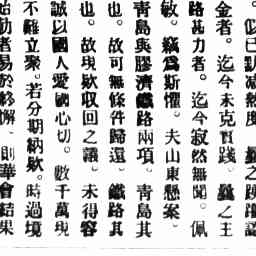 似已默減熱度。曩之踴躍認
金者。迄今未克實踐。曩之主
路甚力者。迄今寂然無聞。佩
敏。竊爲斯懼。夫山東懸案。
青島與膠濟鐵路兩項。青島其
也。故可無條件歸還。鐵路其
也。故現欵收回之議。未得容
誠以國人愛國心切。數千萬現
不難立聚。若分期納欵。時過境
始勤者易於終懈。則華會結果